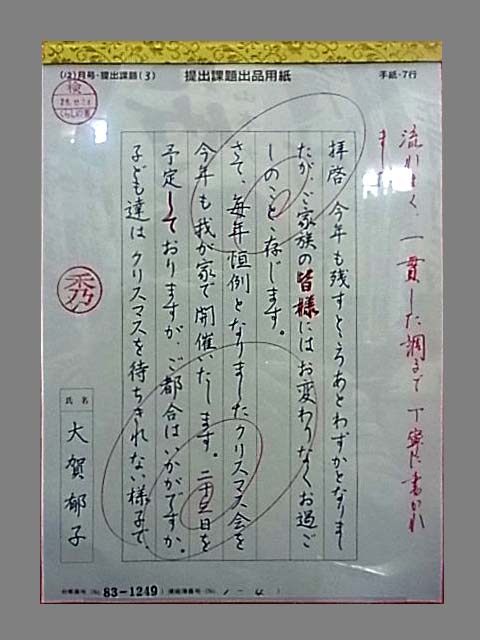 (12)月号・提出課題(3)
提出課題出品用紙
手紙・7行
検
くらしの書
流れよく、一貫した調子で丁寧に書かれ
ました
拝啓 今年も残すところあとわずかとなりまし
たが、ご家族の皆様にはお変わりなくお過ご
しのことと存じます。
さて、毎年恒例となりましたクリスマス会を
今年も我が家で開催いたします。二十三日を
予定しておりますが、ご都合はいかがですか。
子ども達はクリスマスを待ちきれない様子で、
秀
氏名
大賀郁子
83-1249